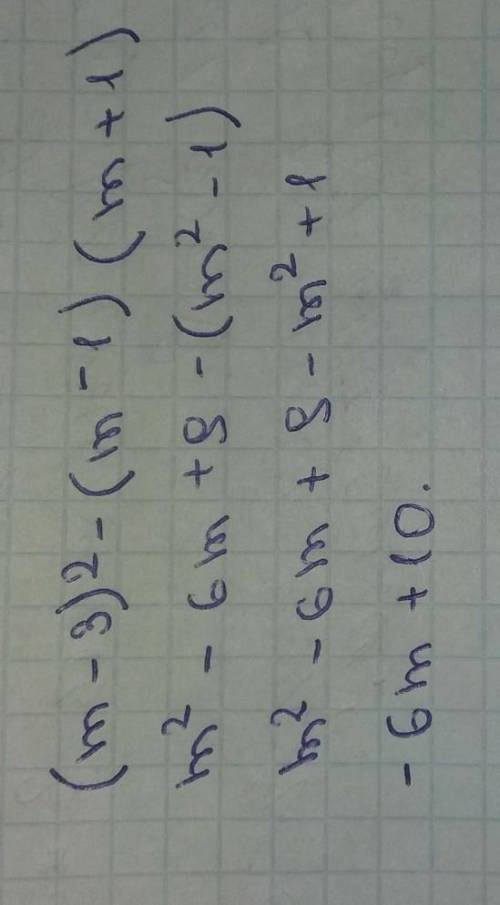 (m - 3)² - (m - 1)(m + 1)
m² - 6m + 9 - (m² - 1)
m² - 6m + 9 - m² + 1
- 6m + 10.